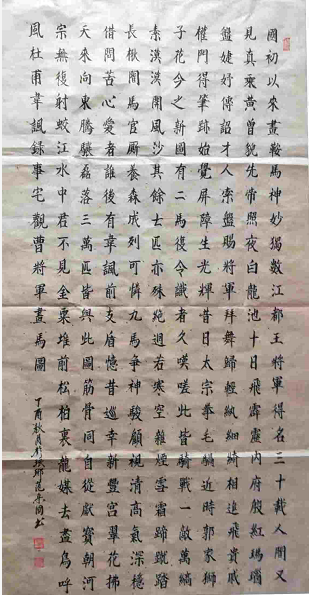 國初以來畫鞍馬神妙獨數江都王將軍得名三十載人間又
見真乘黃曾貌先帝照夜白龍池十日飛霹靂內府殷紅瑪瑙
盤婕妤傳詔才人索盤賜將軍拜舞歸輕紈細綺相追飛貴戚
權門得筆跡始覺屏障生光輝昔日太宗拳毛騧近時郭家獅
子花今之新圖有二馬復令識者久嘆嗟此皆騎戰一敵萬縞
素漠漠開風沙其餘七匹亦殊絕迥若寒空雜煙雪霜蹄蹴踏
長楸間馬官廝養森成列可憐九馬爭神駿顧視清高氣深穩
借問苦心愛者誰後有韋諷前支盾憶昔巡幸新豐宮翠花拂
天來向東騰驤磊落三萬匹皆與此圖筋骨同自從獻寶朝河
宗無復射蛟江水中君不見金粟堆前松柏裏龍媒去盡鳥呼
風杜甫韋諷錄事宅觀曹將軍畫馬圖
丁酉秋月